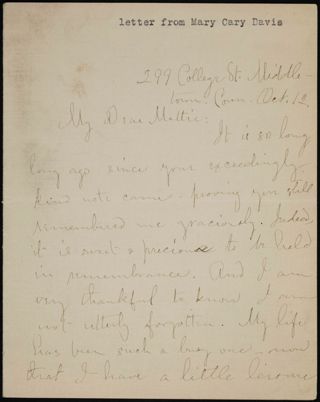 letter from Mary Cary Davis
299 College St. Middle-
town. Conn. Oct. 12.
My Dear Mattie:
It is so long
long ago since your exceedingly
kind note came - proving you still
remembered me graciously. Indeed,
it is sweet & precious to be held
in remembrance. And I am
very thankful to know I am
not utterly forgotten. My life
has been such a busy one - now
that I have a little leisure